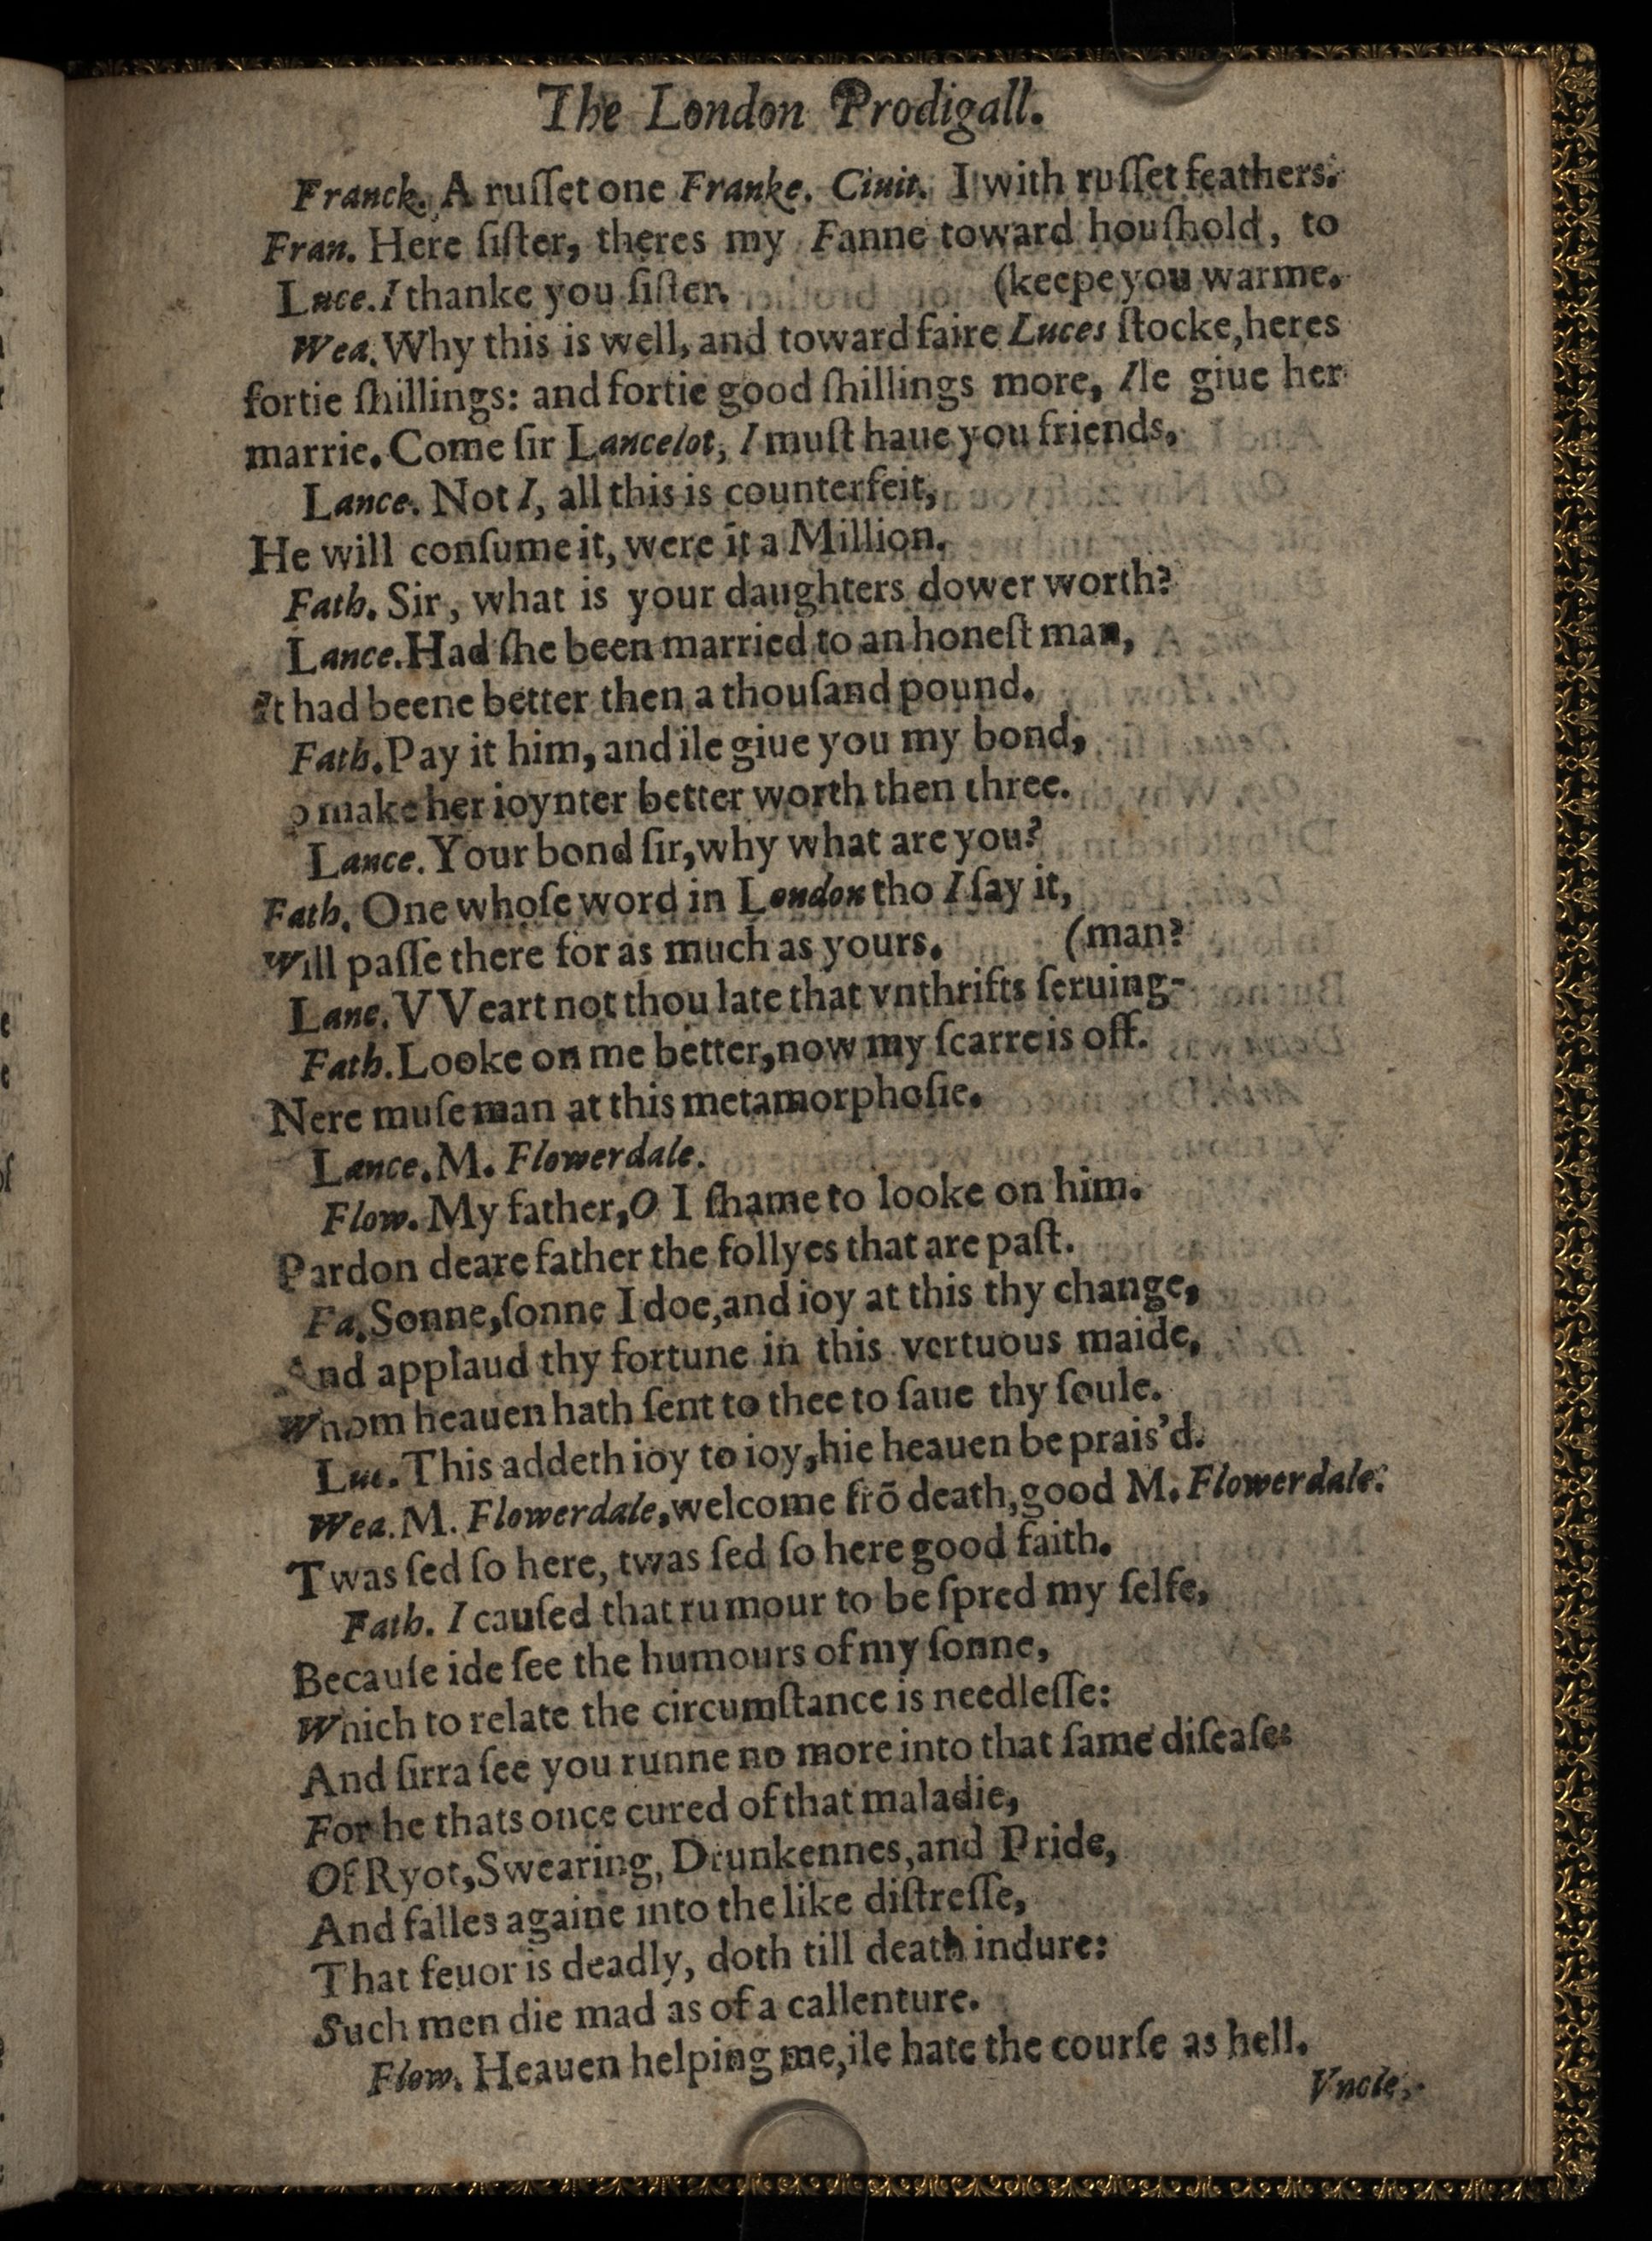 The London Prodigall.
Franck. A ruſſet one Franke. Ciuit. I with ruſſet feathers.
Fran. Here ſiſter, theres my Fanne toward houſhold, to
Luce. I thanke you ſiſter. (keepe you warme.
Wea. Why this is well, and toward faire Luces ſtocke, heres
fortie ſhillings: and fortie good ſhillings more, Ile giue her
marrie. Come ſir Lancelot, I muſt haue you friends.
Lance. Not I, all this is counterfeit,
He will conſume it, were it a Million.
Fath. Sir, what is your daughters dower worth?
Lance. Had ſhe been married to an honeſt man,
It had beene better then a thouſand pound.
Fath. Pay it him, and ile giue you my bond,
o make her ioynter better worth then three.
Lance. Your bond ſir, why what are you?
Fath. One whoſe word in London tho I ſay it,
Will paſſe there for as much as yours. (man?
Lane. VVeart not thou late that vnthrifts ſeruing-
Fath. Looke on me better, now my ſcarre is off.
Nere muſe man at this metamorphoſie.
Lance. M. Flowerdale.
Flow. My father, O I ſhame to looke on him.
Pardon deare father the follyes that are paſt.
Fa. Sonne, ſonne I doe, and ioy at this thy change,
And applaud thy fortune in this vertuous maide,
Whom heauen hath ſent to thee to ſaue thy ſoule.
Luc. This addeth ioy to ioy, hie heauen be prais'd.
Wea. M. Flowerdale, welcome frō death, good M. Flowerdale.
Twas ſed ſo here, twas ſed ſo here good faith.
Fath. I cauſed that rumour to be ſpred my ſelfe,
Becauſe ide ſee the humours of my ſonne,
Which to relate the circumſtance is needleſſe:
And ſirra ſee you runne no more into that ſame diſeaſe:
For he thats once cured of that maladie,
Of Ryot, Swearing, Drunkennes, and Pride,
And falles againe into the like diſtreſſe,
That feuor is deadly, doth till death indure:
Such men die mad as of a callenture.
Flow. Heauen helping me, ile hate the courſe as hell.
Vncle,